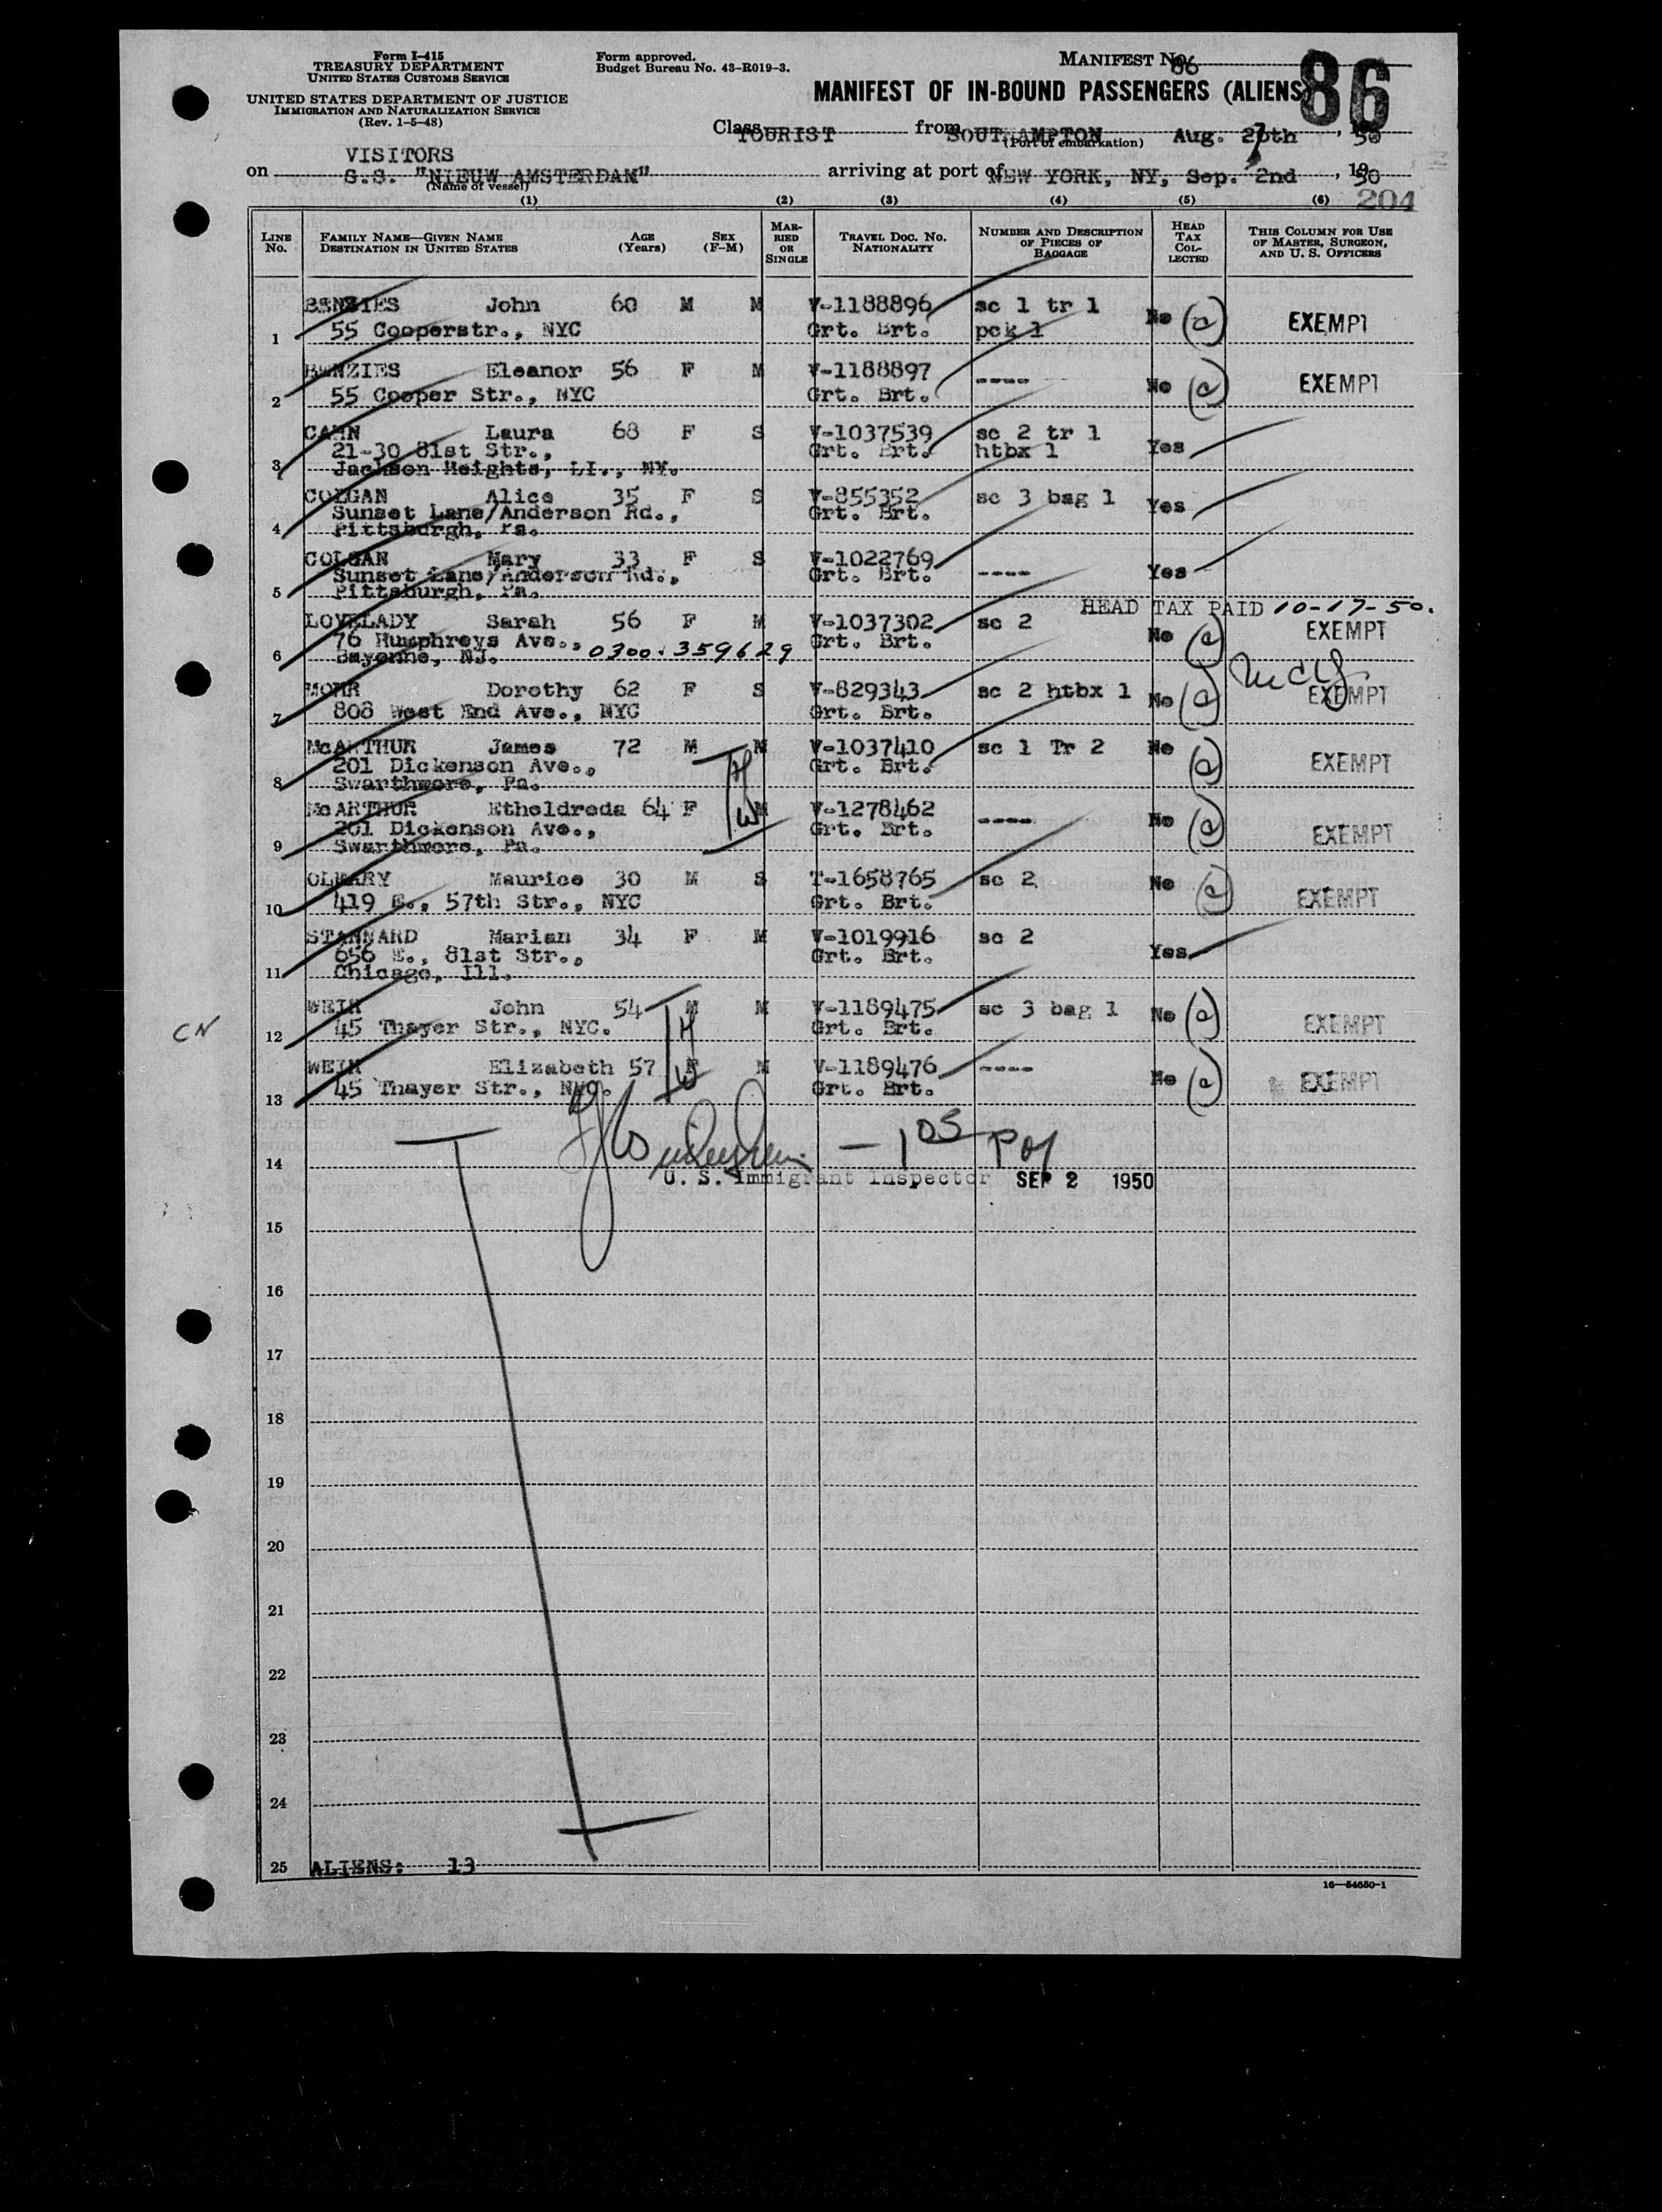 Form I-415
TREASURY DEPARTMENT
UNITED STATES CUSTOMS SERVICE
UNITED STATES DEPARTMENT OF JUSTICE
IMMIGRATION AND NATURALIZATION SERVICE
(Rev. 1-5-48)
Form approved.
Budget Bureau No. 43-R019-3.
MANIFEST No. 86
86
MANIFEST OF IN-BOUND PASSENGERS (ALIENS)
Class TOURIST from SOUTHAMPTON Aug. 27th, 1950
(Port of embarkation)
VISITORS
on S.S. "NIEUW AMSTERDAM" arriving at port of NEW YORK, NY, Sep. 2nd, 1950
(Name of vessel)
204
(1) (2) (3) (4) (5) (6)
LINE No. FAMILY NAME—GIVEN NAME DESTINATION IN UNITED STATES AGE (Years) SEX (F-M) MARRIED OR SINGLE TRAVEL DOC. NO. NATIONALITY NUMBER AND DESCRIPTION OF PIECES OF BAGGAGE HEAD TAX COLLECTED THIS COLUMN FOR USE OF MASTER, SURGEON, AND U. S. OFFICERS
BENZIES John 60 M M V-1188896 sc 1 tr 1 No EXEMPT
1 55 Cooperstr., NYC Grt. Brt. pck 1
BENZIES Eleanor 56 F M V-1188897 ---- No EXEMPT
2 55 Cooper Str., NYC Grt. Brt.
CAHN Laura 68 F S V-1037539 sc 2 tr 1 Yes
21-30 81st Str., Grt. Brt. htbx 1
3 Jackson Heights, LI., NY.
COLGAN Alice 35 F S V-855352 sc 3 bag 1 Yes
Sunset Lane/Anderson Rd., Grt. Brt.
4 Pittsburgh, Pa.
COLGAN Mary 33 F S V-1022769 ---- Yes
Sunset Lane/Anderson Rd., Grt. Brt.
5 Pittsburgh, Pa.
HEAD TAX PAID 10-17-50.
LOVELADY Sarah 56 F M V-1037302 sc 2 No EXEMPT
76 Humphreys Ave., Grt. Brt.
6 Bayonne, NJ. 0300-359629
MOHR Dorothy 62 F S V-829343 sc 2 htbx 1 No EXEMPT
7 808 West End Ave., NYC Grt. Brt.
McARTHUR James 72 M M V-1037410 sc 1 Tr 2 No EXEMPT
201 Dickenson Ave., Grt. Brt.
8 Swarthmore, Pa.
H
W
McARTHUR Etheldreda 64 F M V-1278462 ---- No EXEMPT
201 Dickenson Ave., Grt. Brt.
9 Swarthmore, Pa.
OLEARY Maurice 30 M S T-1658765 sc 2 No EXEMPT
10 419 E., 57th Str., NYC Grt. Brt.
STANNARD Marian 34 F M V-1019916 sc 2 Yes
656 E., 81st Str., Grt. Brt.
11 Chicago, Ill.
WEIR John 54 M M V-1189475 sc 3 bag 1 No EXEMPT
CN 12 45 Thayer Str., NYC. Grt. Brt.
H
W
WEIR Elizabeth 57 F M V-1189476 ---- No EXEMPT
13 45 Thayer Str., NYC. Grt. Brt.
14
U. S. Immigrant Inspector SEP 2 1950
15
16
17
18
19
20
21
22
23
24
25 ALIENS: 13
16—54650-1